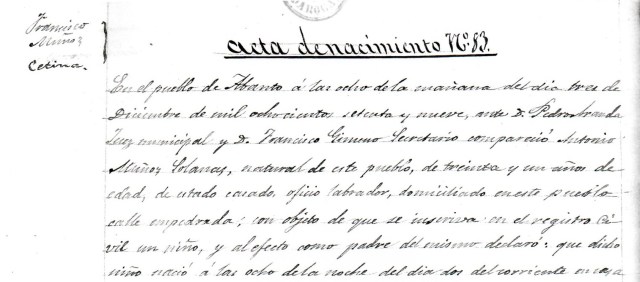 DAROCA
Francisco
Muñoz
Cetina.
acta de nacimiento Nº 83.
En el pueblo de Abanto á las ocho de la mañana del dia tres de
Diciembre de mil ochocientos setenta y nueve, ante D. Pedro Aranda
Juez municipal y D. Francisco Gimeno Secretario compareció Antonio
Muñoz Solanas, natural de este pueblo, de treinta y un años de
edad, de estado casado, oficio labrador, domiciliado en este pueblo
calle empedrada; con objeto de que se inscriva en el registro Ci-
vil un niño, y al efecto como padre del mismo declaró: que dicho
niño nació á las ocho de la noche del dia dos del corriente en casa